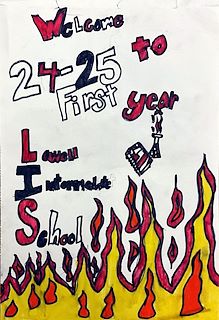 Welcome
to
24-25
First
year
Lowell
Intermediate
School